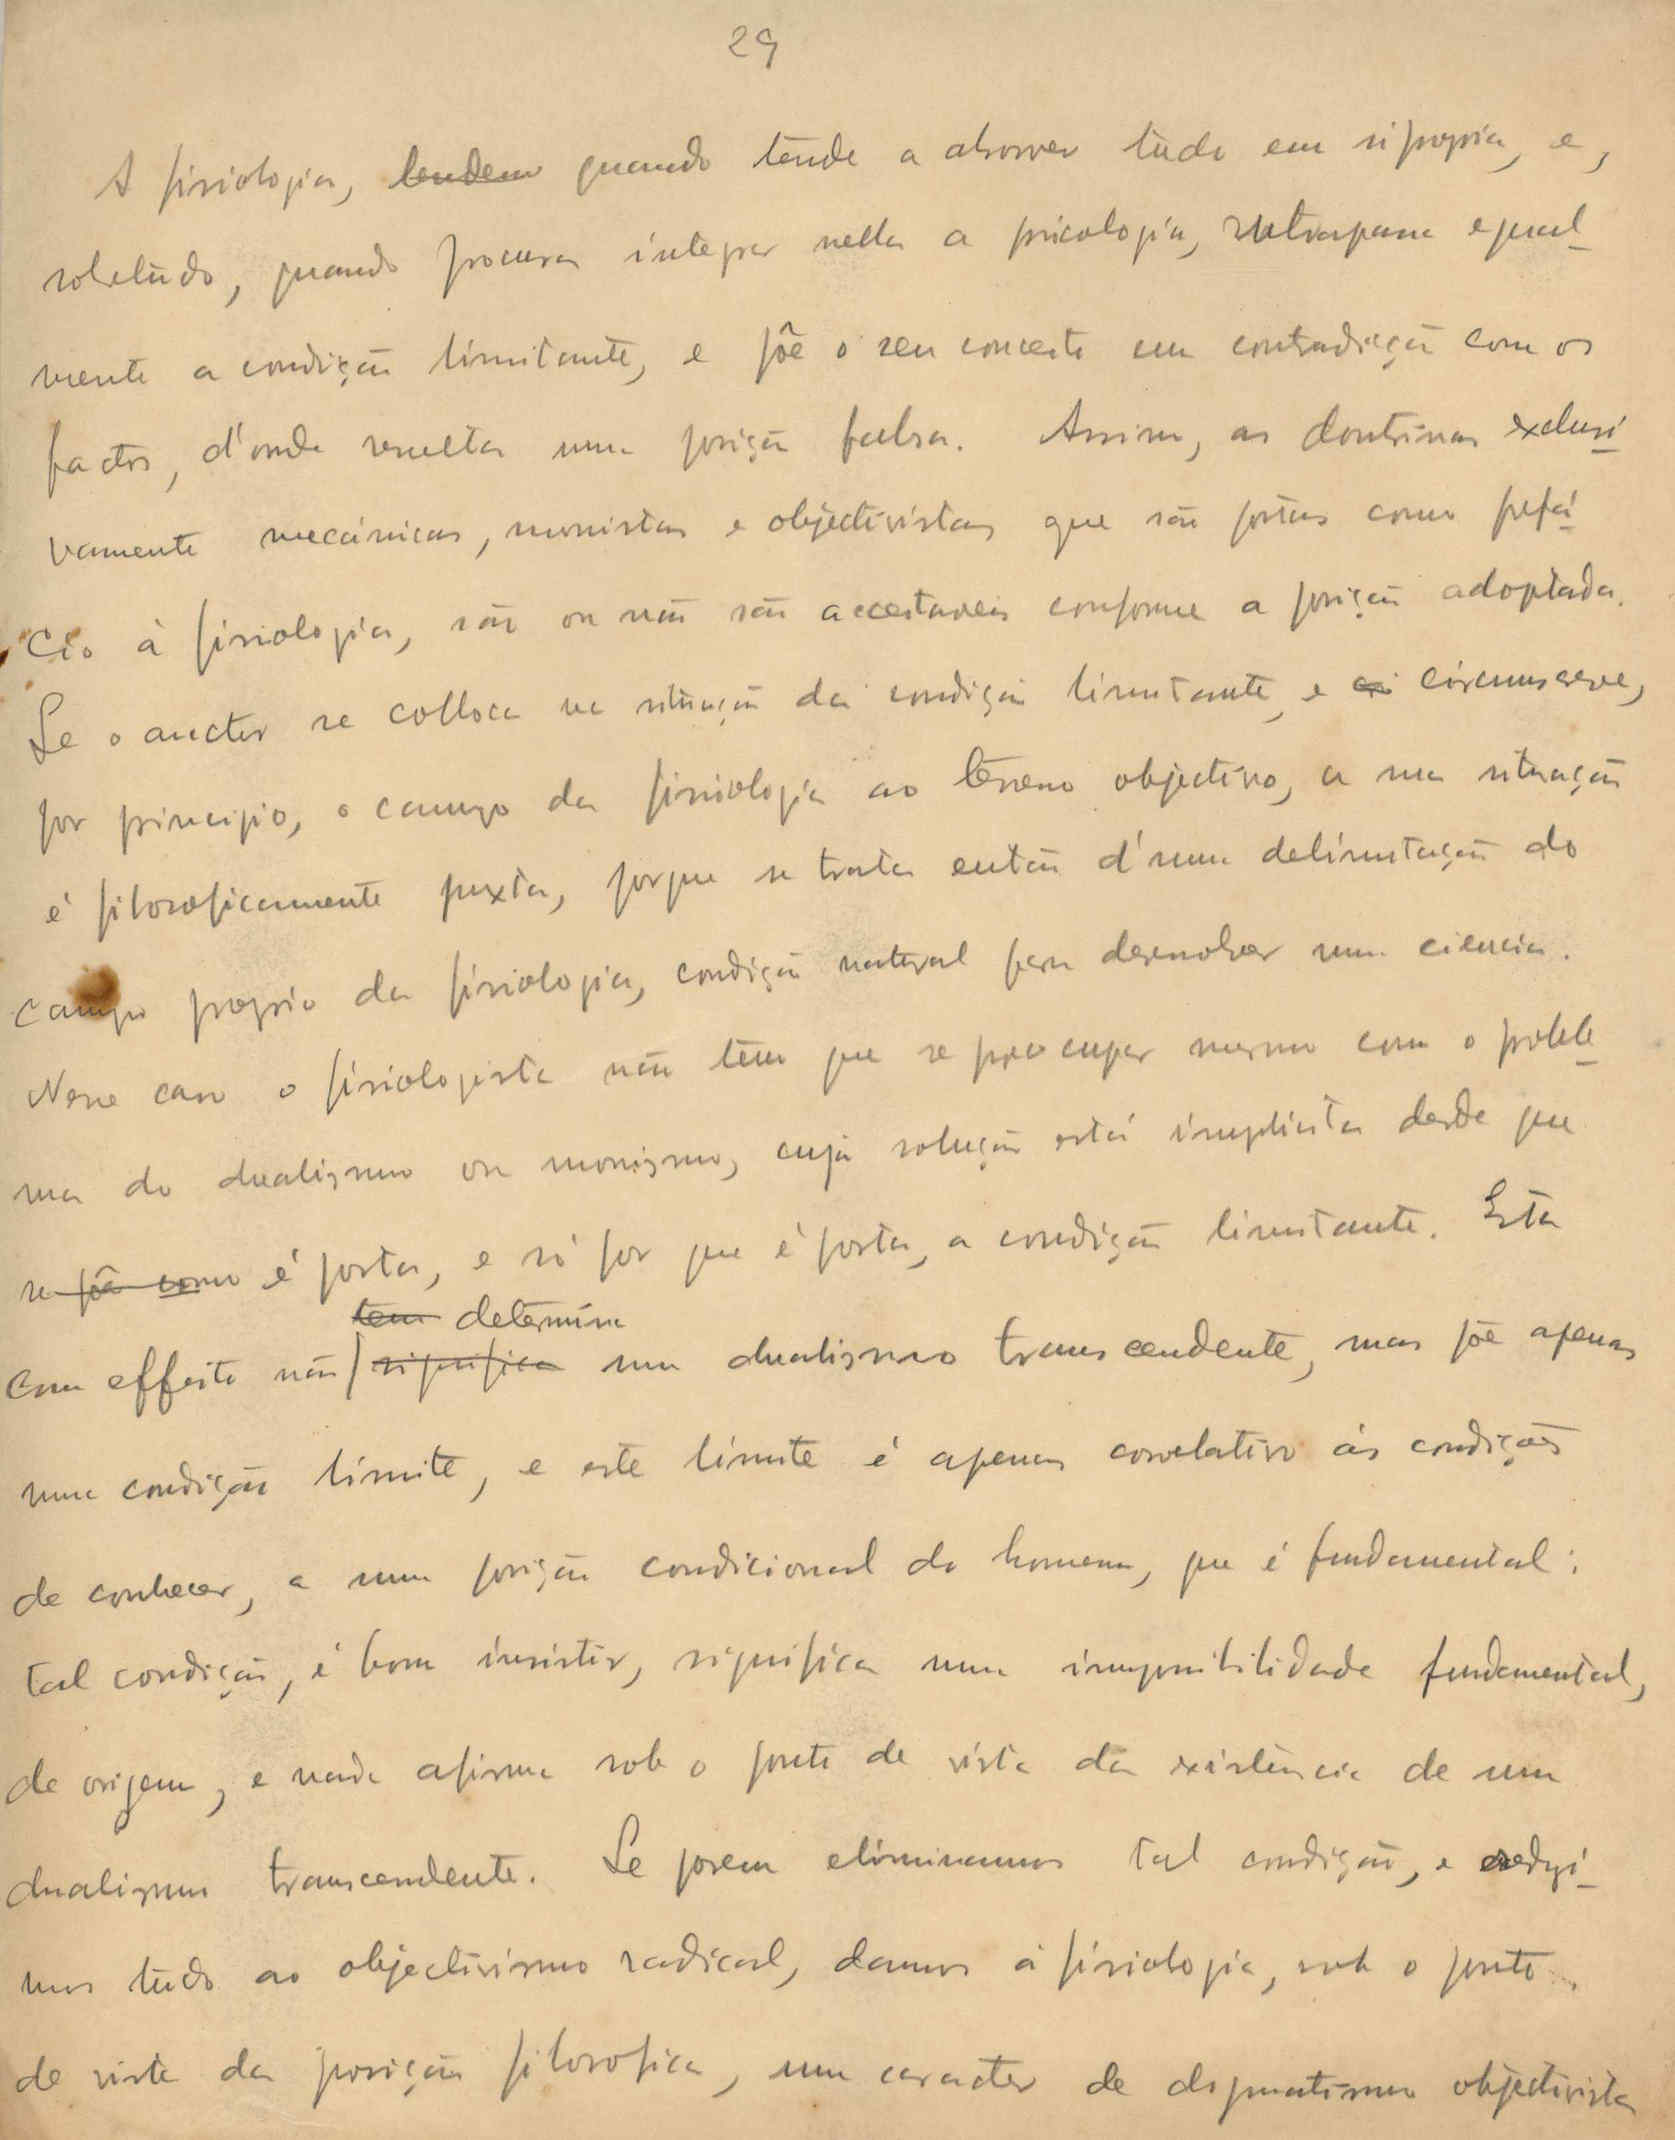 29
A fisiologia, tendem quando tende a absorver tudo em si propria, e,
sobretudo, quando procura integrar nella a psicologia, ultrapassa egual-
mente a condição limitante, e põe o seu conceito em contradicção com os
factos, d'onde resulta uma posição falsa. Assim, as doutrinas exclusi-
vamente mecánicas, monistas e objectivistas que são postas como prefá-
cio á fisiologia, são ou não são acceitaveis conforme a posição adoptada.
Se o auctor se colloca na situação da condição limitante, e circumscreve,
por principio, o campo da fisiologia ao terreno objectivo, a sua situação
é filosoficamente justa, porque se trata então d'uma delimitação do
campo proprio da fisiologia, condição natural para desenvolver uma ciencia.
Nesse caso o fisiologista não tem que se preoccupar mesmo com o proble-
ma do dualismo ou monismo, cuja solução está implicita desde que
se põe como é posta, e só por que é posta, a condição limitante. Esta
tem determina
com effeito não significa um dualismo transcendente, mas põe apenas
uma condição limite, e este limite é apenas correlativo ás condições
de conhecer, a uma posição condicional do homem, que é fundamental;
tal condição, é bom insistir, significa uma impossibilidade fundamental,
de origem, e nada afirma sob o ponto de vista da existência de um
dualismo transcendente. Se porem eliminamos tal condição, e redusi-
mos tudo ao objectivismo radical, damos á fisiologia, sob o ponto
de vista da posição filosofica, um caracter de dogmatismo objectivista